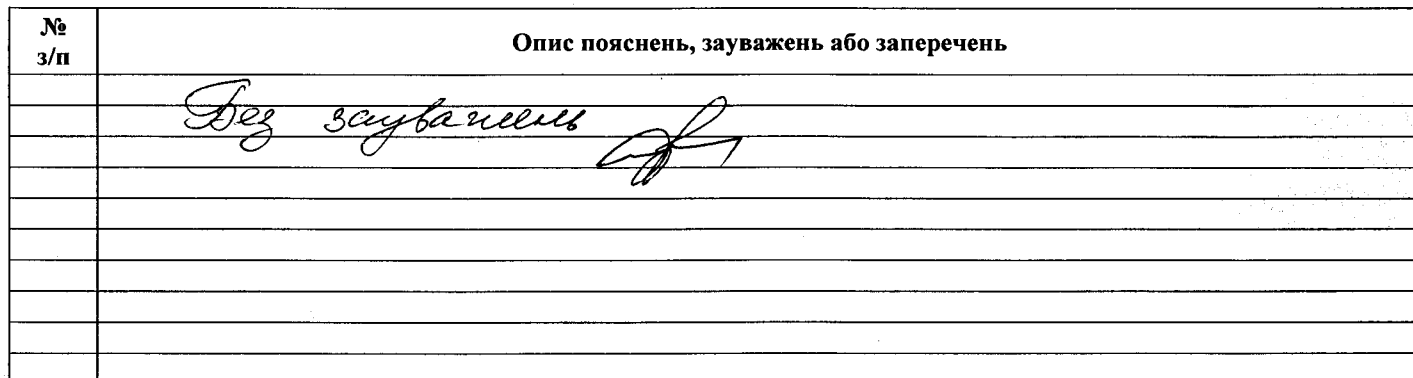 №
з/п
Опис пояснень, зауважень або заперечень
Без зауважень